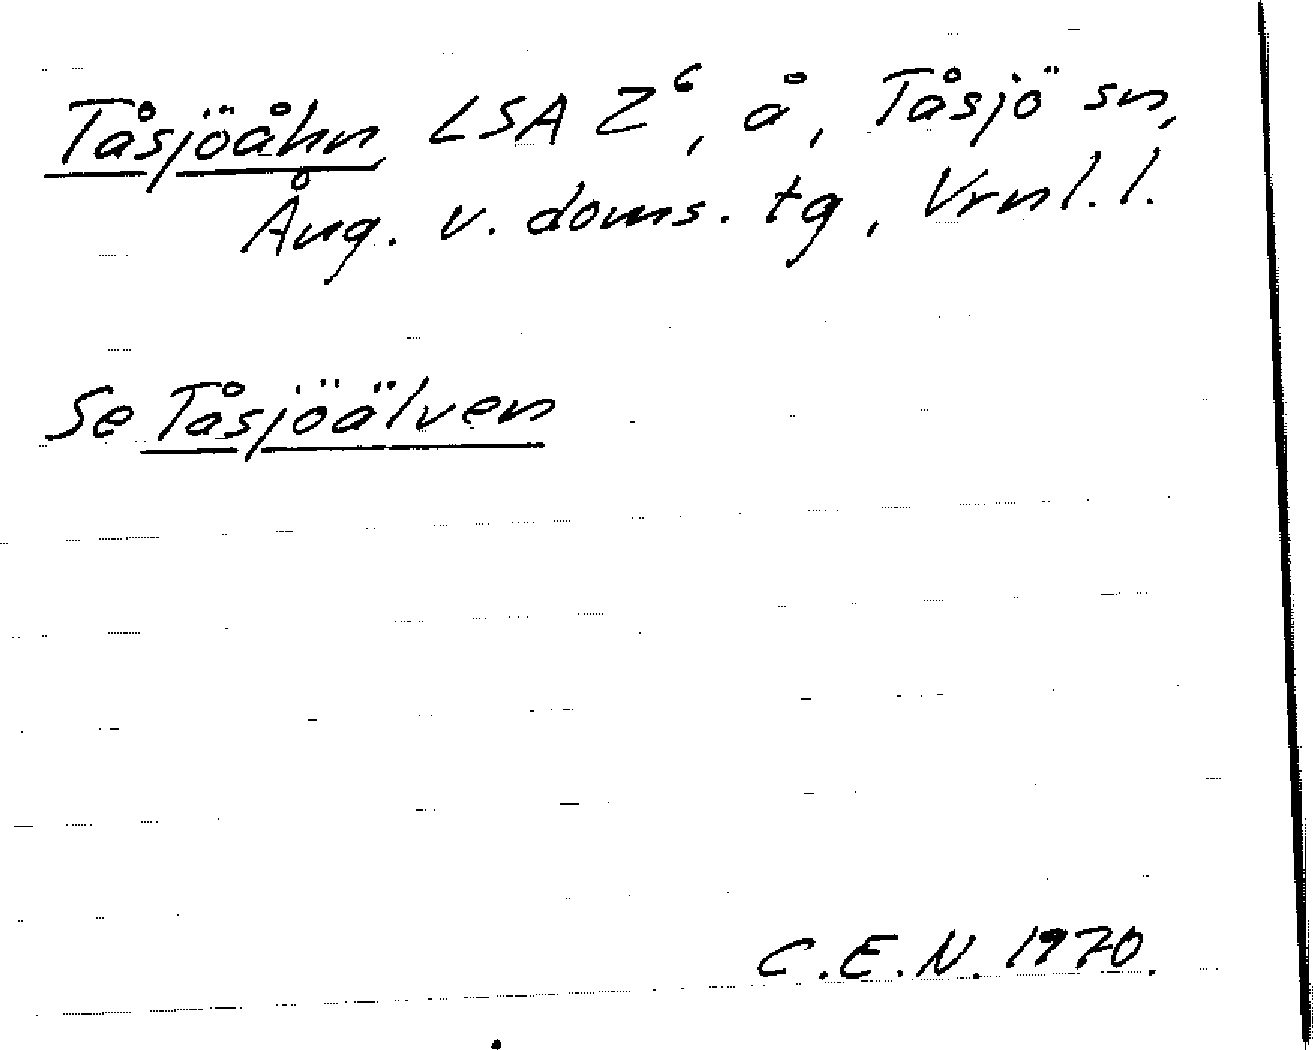 Tåsjöåhn, LSA Z⁶, å, Tåsjö sn,
Ång. v. doms. tg, Vrnl. l.
Se Tåsjöälven
C.E.N. 1970.